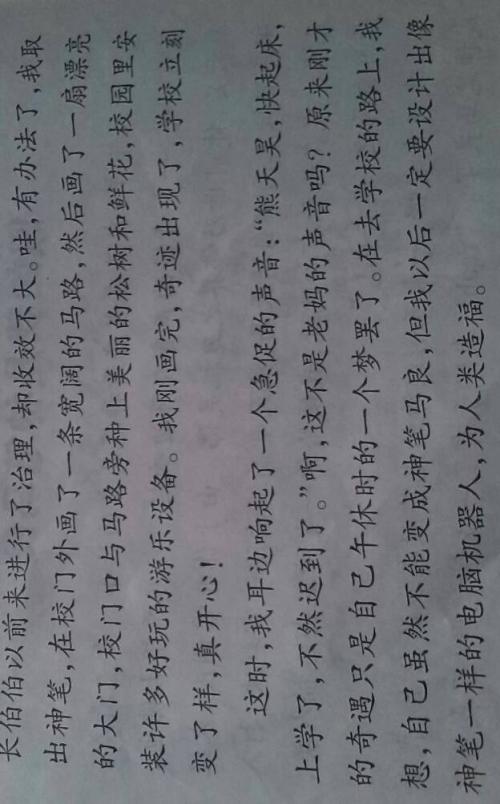 长伯伯以前来进行了治理，却收效不大。哇，有办法了，我取
出神笔，在校门外画了一条宽阔的马路，然后画了一扇漂亮
的大门，校门口与马路旁种上美丽的松树和鲜花，校园里安
装许多好玩的游乐设备。我刚画完，奇迹出现了，学校立刻
变了样，真开心！
这时，我耳边响起了一个急促的声音：“熊天昊，快起床，
上学了，不然迟到了。”啊，这不是老妈的声音吗？原来刚才
的奇遇只是自己午休时的一个梦罢了。在去学校的路上，我
想，自己虽然不能变成神笔马良，但我以后一定要设计出像
神笔一样的电脑机器人，为人类造福。